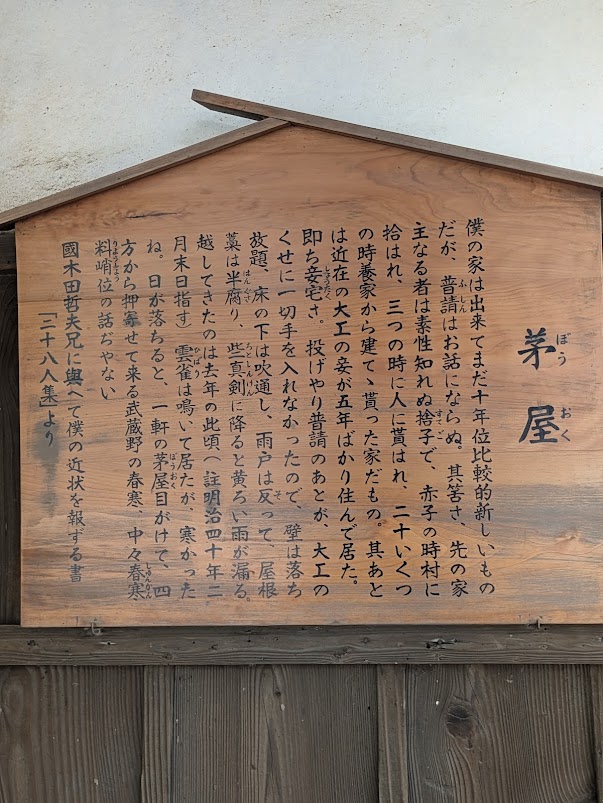 茅屋
ぼうおく
僕の家は出来てまだ十年位比較的新しいもの
だが、普請はお話にならぬ。其筈さ、先の家
ふしん
主なる者は素性知れぬ捨子で、赤子の時村に
すてご
拾はれ、三つの時に人に貰はれ、二十いくつ
の時養家から建てゝ貰った家だもの。其あと
は近在の大工の妾が五年ばかり住んで居た。
即ち妾宅さ。投げやり普請のあとが、大工の
しょうたく
くせに一切手を入れなかったので、壁は落ち
放題、床の下は吹通し、雨戸は反って、屋根
そ
藁は半腐り、些真剣に降ると黄ろい雨が漏る。
はんぐさ
ちとしんけん
越してきたのは去年の此頃（註明治四十年二
月末日指す）雲雀は鳴いて居たが、寒かった
ひばり
ね。日が落ちると、一軒の茅屋目がけて、四
ぼうおく
方から押寄せて来る武蔵野の春寒、中々春寒
しゅんかん
料峭位の話ぢやない
りょうしょう
國木田哲夫兄に與へて僕の近状を報ずる書
「二十八人集」より